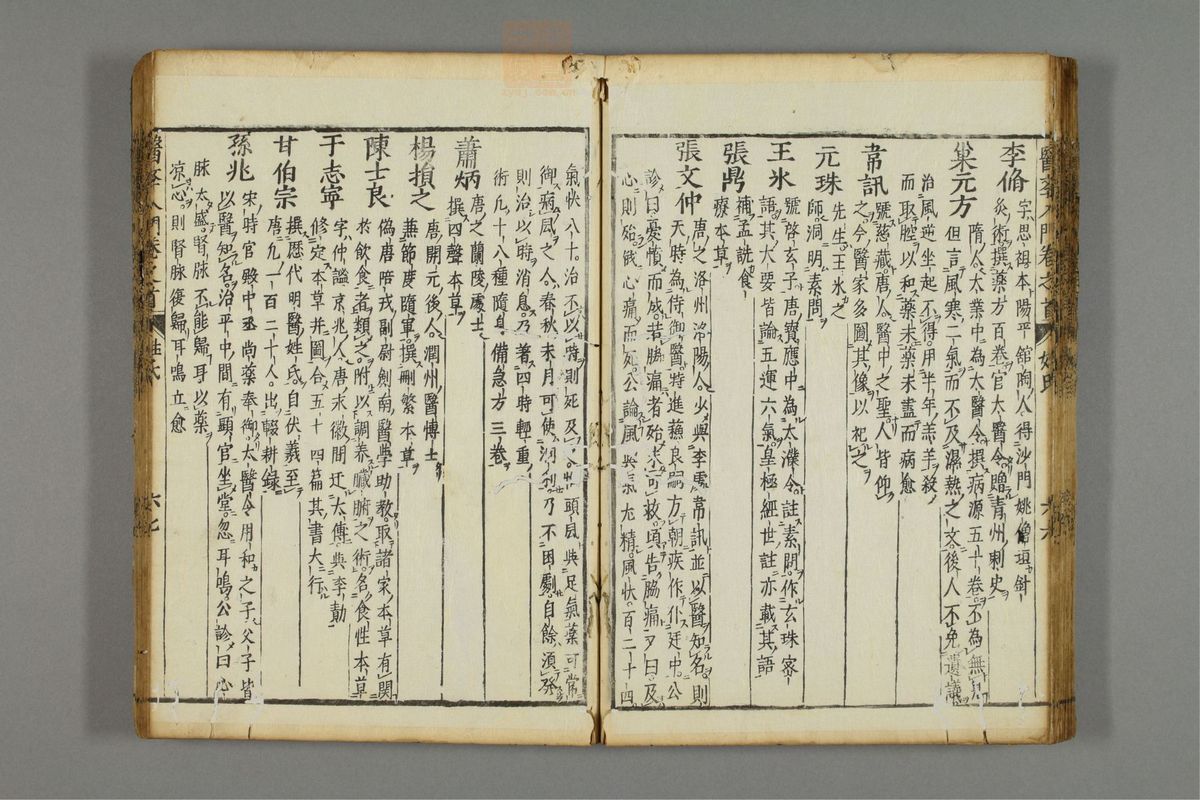 李脩
字思祖本陽平舘陶人得沙門姚僧垣針
灸術撰藥方百卷官太醫令贈青州刺史
巢元方
隋太業中為太醫令撰病源五十卷不為無見
但言風寒二氣而不及濕熱之文後人不免遺議
治風逆坐起不得用半年羔羊殺
而取腔以和藥末藥未盡而病愈
韋訊
號慈藏唐人醫中之聖人皆仰
之今醫家多圖其像以祀之
元珠
先生王氷之
師洞明素問
王氷
號啓玄子唐寶應中為太濮令註素問作玄珠密
語其大要皆論五運六氣皇極經世註亦載其語
張鼎
補孟詵食
療本草
張文仲
唐之洛州洛陽人少與李虔韋訊並以醫知名則
天時為侍御醫特進蘇良嗣方朝疾作仆廷中公
診曰憂憤而成若脇痛者殆未可救頃告脇痛又曰及
心則殆俄心痛而死公論風與氣尤精風快百二十四
醫學入門卷之首
姓氏
六六
氣快八十治不以時則死及之惟頭風與足氣藥可常
御病風之人春秋末月可使洞利乃不困劇自餘須發
則治以時消息乃著四時輕重
術凡十八種隨身備急方三卷
蕭炳
唐之蘭陵處士
撰四聲本草
楊損之
唐開元後人潤州醫博士
兼節度隨軍撰刪繁本草
陳士良
偽唐陪戎副尉劍南醫學助教取諸家本草有關
於飲食者類之附以調養臟腑之術名食性本草
于志寧
字仲謐京兆人唐永徽間迁太傅與李勣
修定本草并圖合五十四篇其書大行
甘伯宗
撰歷代明醫姓氏自伏羲至
唐凡一百二十人出輟耕録
孫兆
宋時官殿中丞尚藥奉御太醫令用和之子父子皆
以醫知名治平中間有顯官坐堂忽耳鳴公診曰心
脉太盛腎脉不能歸耳以藥
凉心則腎脉復歸耳鳴立愈
醫學入門卷之首
姓氏
六七